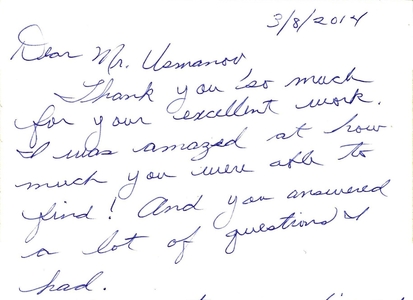 3/8/2014
Dear Mr. Usmanov
Thank you so much
for your excellent work.
I was amazed at how
much you were able to
find! And you answered
a lot of questions I
had.